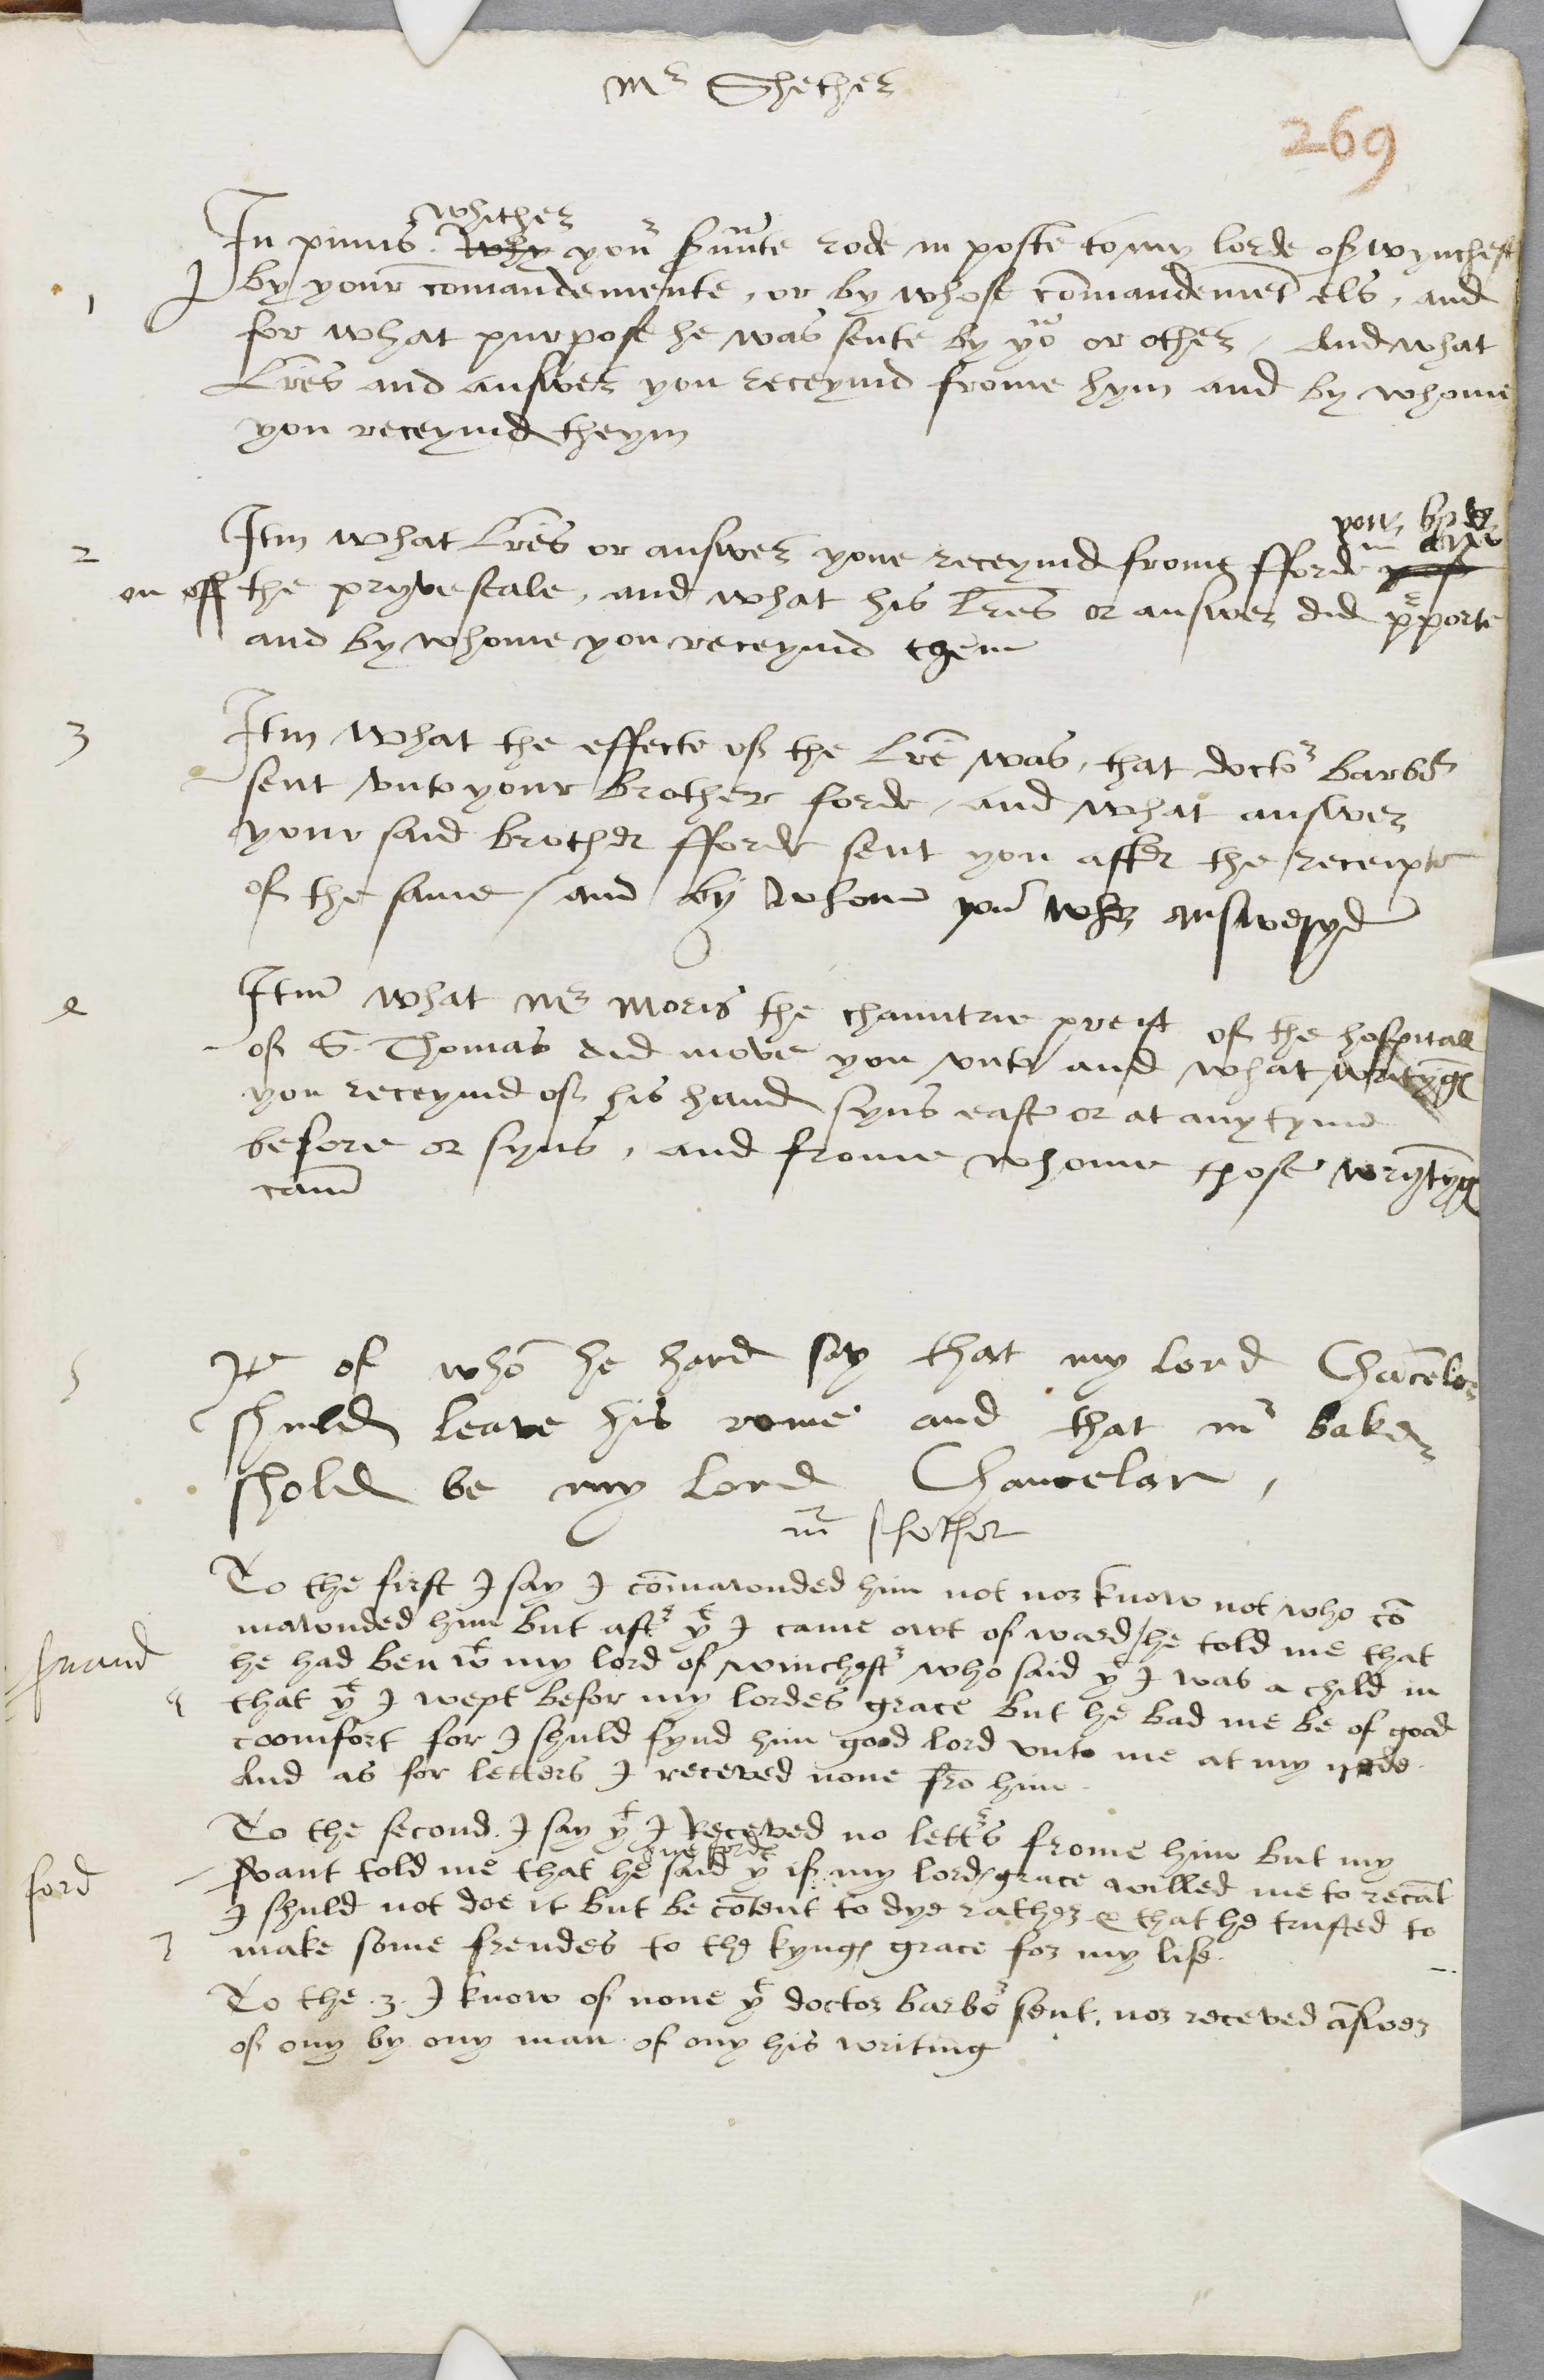 Mr Shether
269
whither
In primis why your suute rode in poste to my lorde of wynchest
1 by your comandemente, or by whose comandemet els, and
for what purpose he was sente by you or other / And what
Lres and answer you receyvid frome hym and by whome
you receyvid theym
your
2 Itm what Lres or answer youe receyvid frome fforde
on off the pryveseale, and what his Lres or answer did purporte
and by whome you receyvid them
3 Itm what the effecte of the Lre was, that doctor barbor
sent unto your brother forde / and what answer
your said brother fforde sent you after the receipte
of the same / and by whome you wher answeryd
Itm what Mr Moris the chauntrie preist of the hospitall
of S. Thomas did move you unto and what writyng
you receyvid of his hand syns easter or at any tyme
before or syns, and frome whome those wrytyng
came
5 Ite of who he hard say that my lord Chacelor
shuld leave his rome and that mr baker
shold be my lord Chancelar,
mr shether
To the first I say I comawnded him not nor know not who co
mawnded him but aftr yt I came owt of ward / he told me that
svand he had ben wt my lord of winchestr who said yt I was a child in
that yt I wept befor my lordes grace but he bad me be of good
coomfort for I shuld fynd him good lord unto me at my nede.
And as for letters I receved none fro him.
To the second. I say yt I Receved no lettrs frome him but my
one forde
ford svant told me that he said yt if my lordes grace willed me to recat
I shuld not doe it but be cotent to dye rather & that he trusted to
make some frendes to the kynges grace for my life.
To the .3. I know of none yt doctor barbor sent, nor receved aswer
of ony by ony man of ony his writing